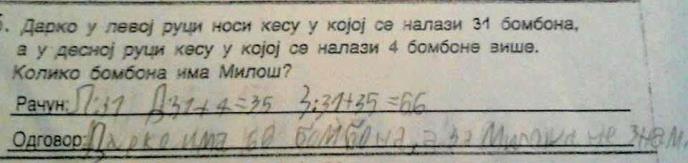 5. Дарко у левој руци носи кесу у којој се налази 31 бомбона,
а у десној руци кесу у којој се налази 4 бомбоне више.
Колико бомбона има Милош?
Рачун: Л:31 Д31+4=35 З:31+35=66
Одговор: Дарко има 66 бомбона, а за Милоша не знам.